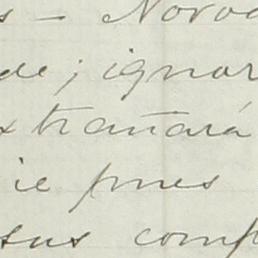 s – Novod
de; ignor
xtrañará
ie pues
sus comp